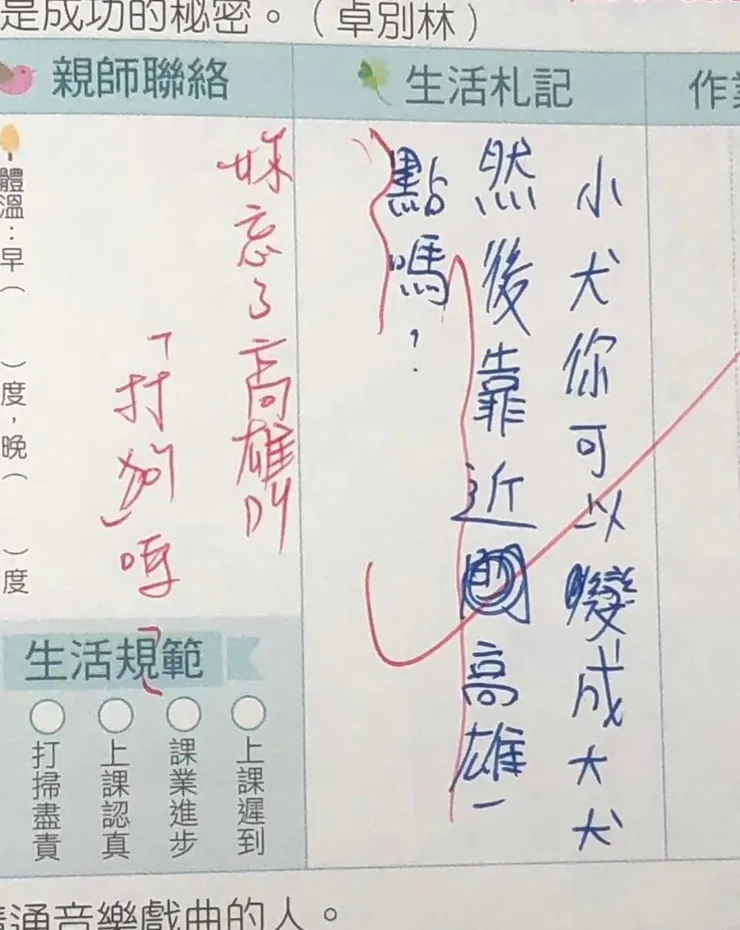 是成功的秘密。（卓別林）
親師聯絡
生活札記
作
小犬你可以變成大犬
然後靠近高雄一
點嗎？
妹忘了高雄叫
「打狗」嗎
體溫：早（　）度，晚（　）度
生活規範
上課遲到
課業進步
上課認真
打掃盡責
通音樂戲曲的人。